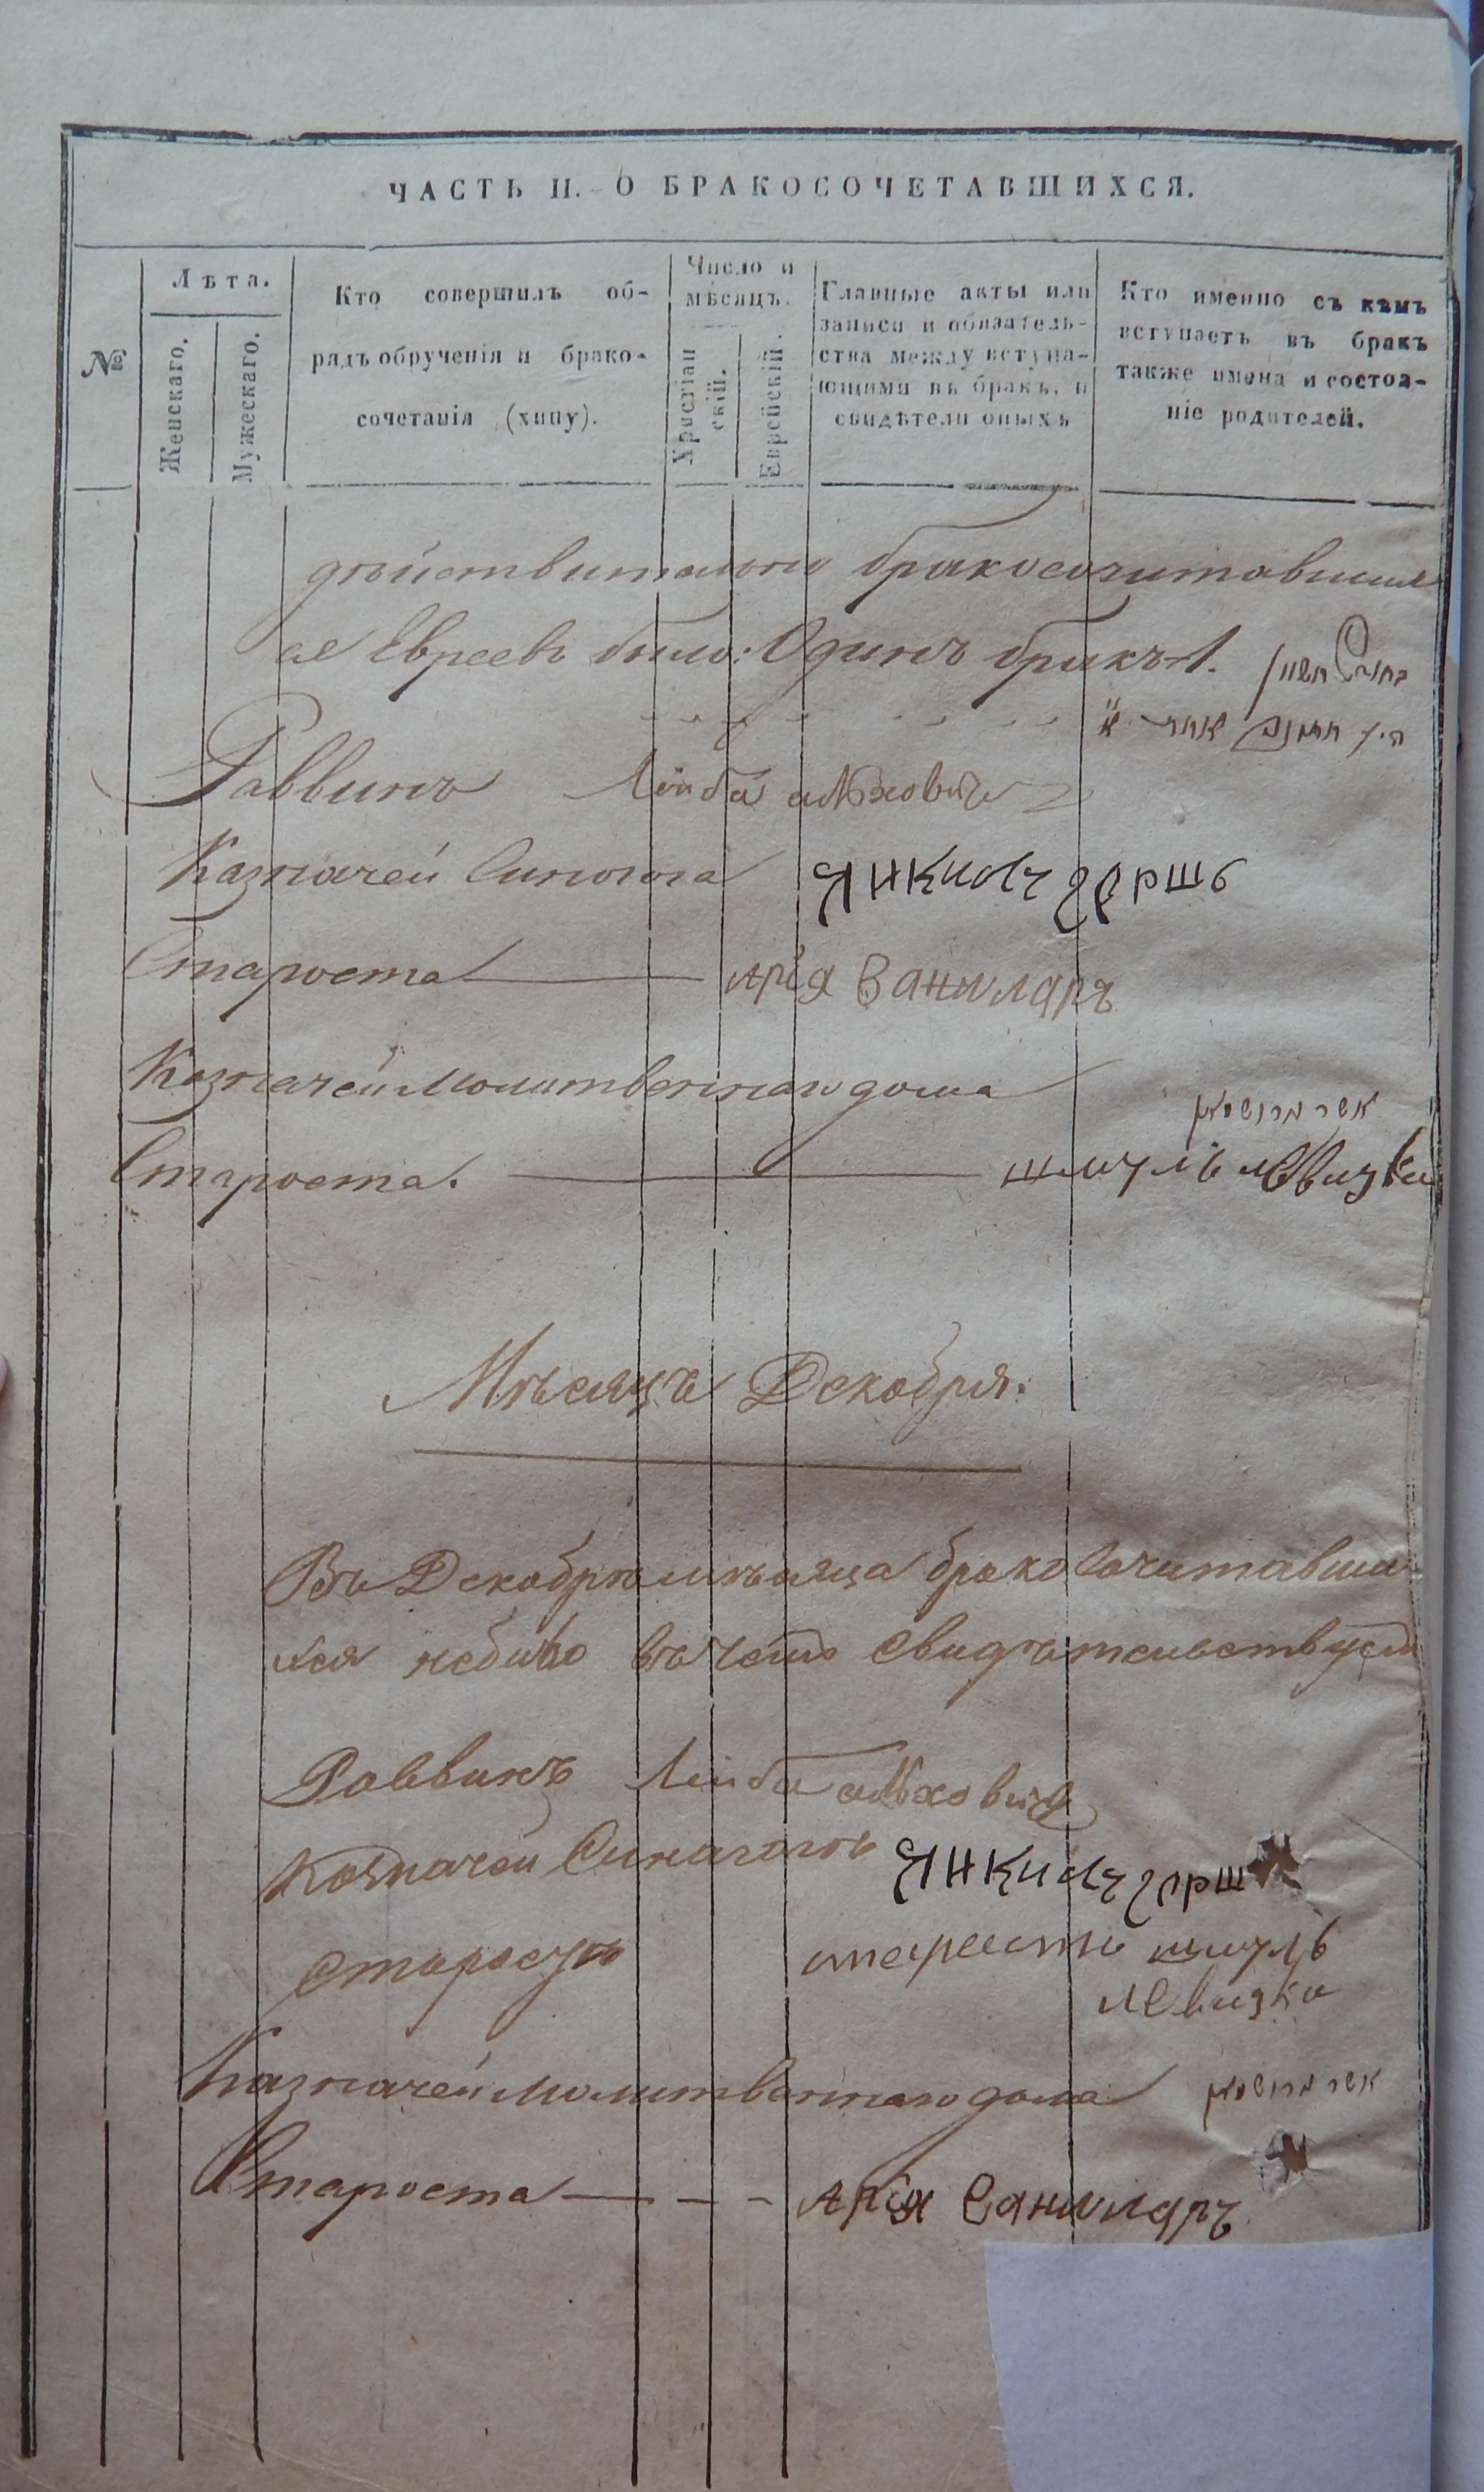 ЧАСТЬ II. О БРАКОСОЧЕТАВШИХСЯ.
№
Лѣта.
Женскаго.
Мужескаго.
Кто совершилъ об-
рядъ обрученія и брако-
сочетанія (хипу).
Число и
мѣсяцъ.
Христіан
скій.
Еврейскій.
Главные акты или
записи и обязатель-
ства между вступа-
ющими въ бракъ, и
свидѣтели оныхъ
Кто именно съ кѣмъ
вступаетъ въ бракъ
также имена и состоя-
ніе родителей.
дѣйствительно бракосочитавшия
ся Евреевъ было: Одинъ бракъ 1.
Раввинъ Лейба
Казначей Синагога Янкиль Гершъ
Староста Арія
Казначей Молитвеннаго дома
Староста. Шмуль Левизки
Мѣсяцъ Декабря.
Въ Декабрѣ мѣсяца бракосочитавши
хся небыло въ чемъ свидѣтельствуем
Раввинъ Лейба
Казначей Синагоги Янкиль Герш
Старосты старости шмуль
левизки
Казначей Молитвеннаго дома
Староста Арія